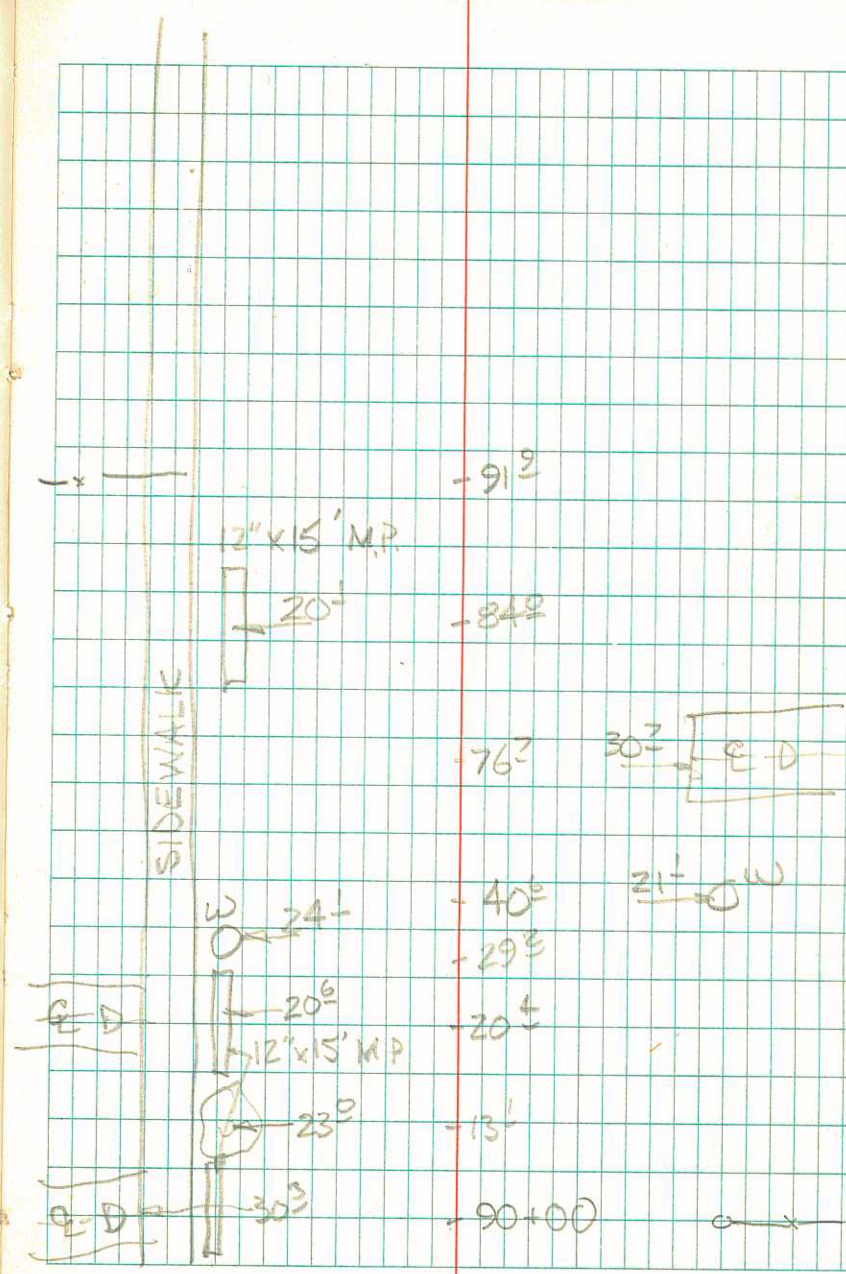 -91⁹
12" x 15' M.P.
20¹ -84⁰
SIDEWALK
-76⁷ 30⁷ ℄ D
W 24¹ -40⁶ 21¹ W
-29²
℄ D 20⁶ -20⁴
12" x 15' M.P
23⁰ -13¹
℄ D 30³ -90+00